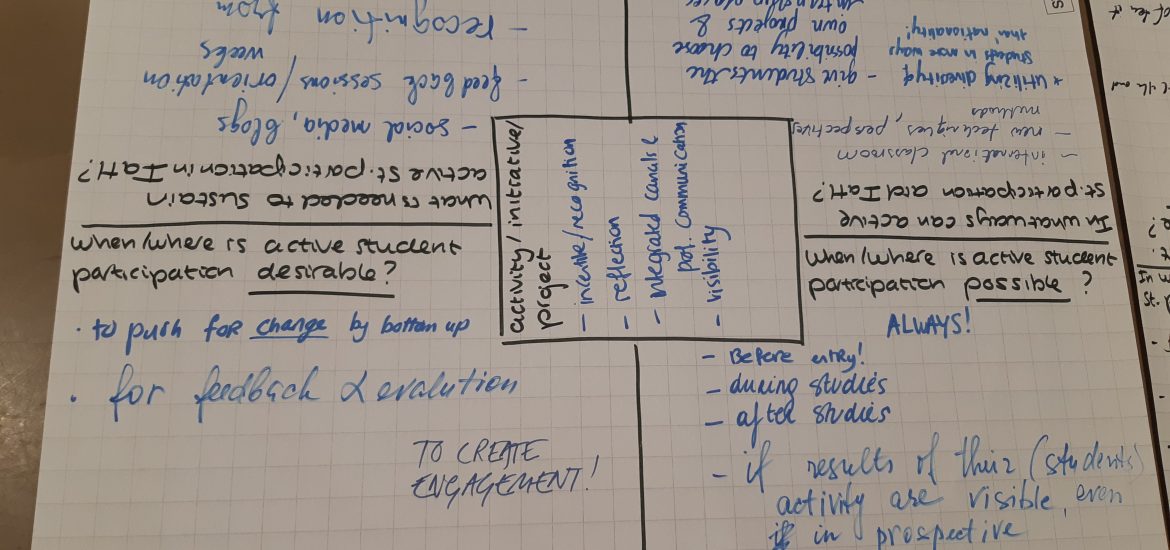 what is needed to sustain
active st. participation in IaH?
- social media, blogs
- feedback sessions / orientation
weeks
- recognition from
In what ways can active
st. participation aid IaH?
- international classroom
- new techniques, perspectives,
methods
* utilizing diversity of
students in more ways
than nationality!
- give students the
possibility to choose
own projects &
activity / initiative /
project
- incentive/recognition
- reflection
- integrated canals &
pot. communication
- visibility
when/where is active student
participation desirable?
· to push for change by bottom up
· for feedback & evalution
TO CREATE
ENGAGEMENT!
when/where is active student
participation possible?
ALWAYS!
- Before entry!
- during studies
- after studies
- if results of their (students)
activity are visible, even
if in prospective